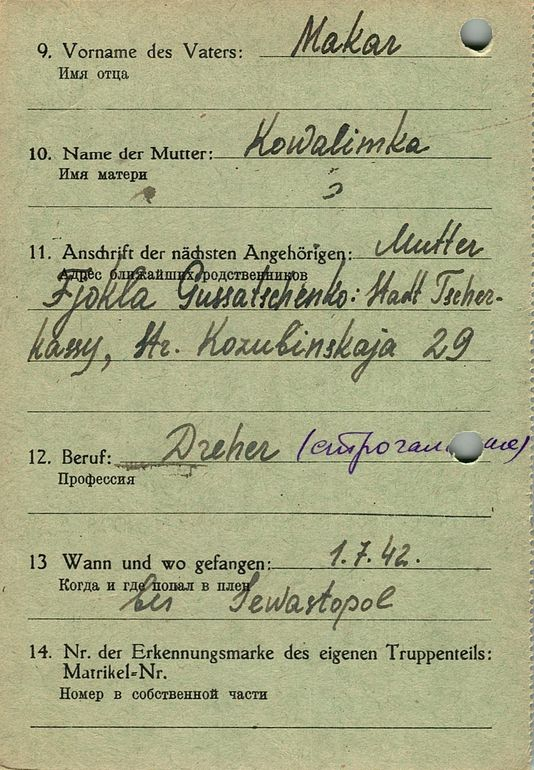 9. Vorname des Vaters: Makar
Имя отца
10. Name der Mutter: Kowalimka
Имя матери
11. Anschrift der nächsten Angehörigen: Mutter
Адрес ближайших родственников
Fjokla Gussatschenko: Stadt Tscher-
kassy, Str. Kozubinskaja 29
12. Beruf: Dreher
Профессия
13 Wann und wo gefangen: 1.7.42.
Когда и где попал в плен
bei Sewastopol
14. Nr. der Erkennungsmarke des eigenen Truppenteils:
Matrikel-Nr.
Номер в собственной части